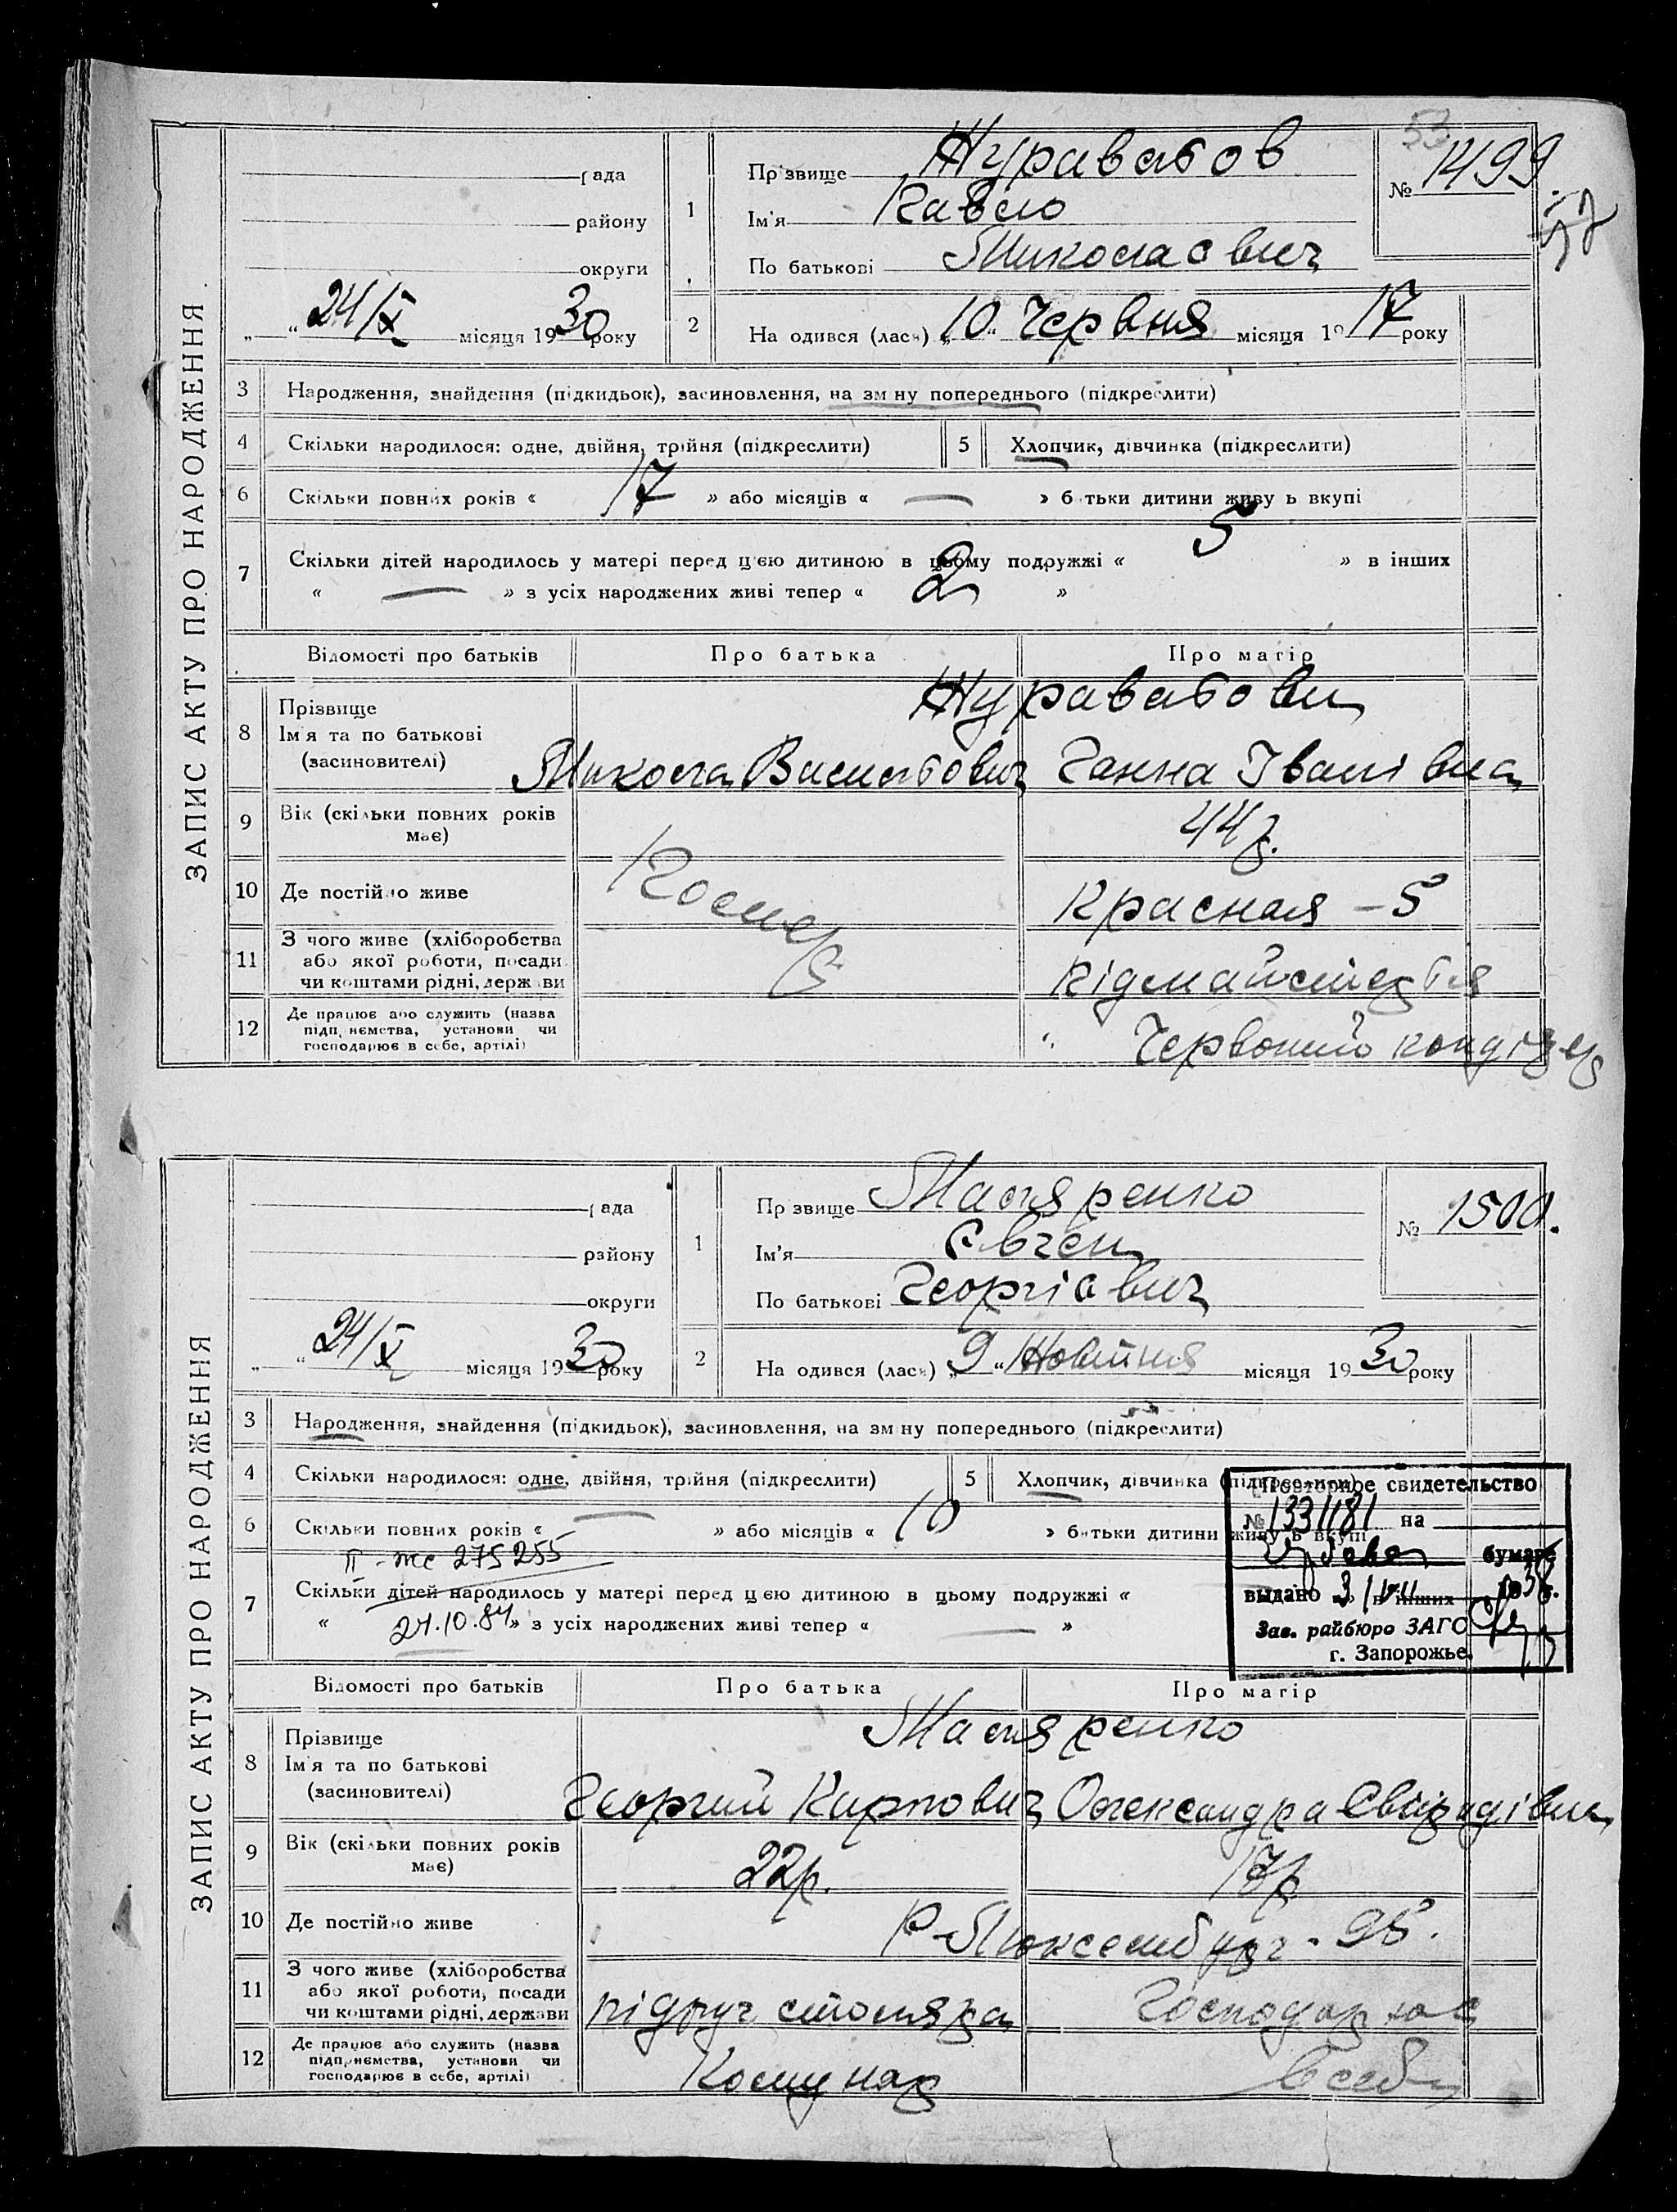 ЗАПИС АКТУ ПРО НАРОДЖЕННЯ
53
рада
району
округи
„ “ 24/X місяця 1930 року
1
Прізвище Журавльов
Ім'я Павло
По батькові Миколаєвич
№ 1499.
57
2
Народився (лася) „10“ Червня місяця 1917 року
3 Народження, знайдення (підкидьок), засиновлення, на зміну попереднього (підкреслити)
4 Скільки народилося: одне, двійня, трійня (підкреслити)
5 Хлопчик, дівчинка (підкреслити)
6 Скільки повних років « 17 » або місяців « — » батьки дитини живуть вкупі
7 Скільки дітей народилось у матері перед цією дитиною в цьому подружжі « 5 » в інших
« — » з усіх народжених живі тепер « 2 »
Відомості про батьків Про батька Про матір
8 Прізвище
Ім'я та по батькові
(засиновителі)
Журавльови
Микола Васильович Ганна Іванівна
9 Вік (скільки повних років має) 44 р.
10 Де постійно живе Помер Красная – 5
11 З чого живе (хліборобства або якої роботи, посади чи коштами рідні, держави
12 Де працює або служить (назва підприємства, установи чи господарює в себе, артілі)
ЗАПИС АКТУ ПРО НАРОДЖЕННЯ
рада
району
округи
„ “ 24/X місяця 1930 року
1
Прізвище Маляренко
Ім'я Євген
По батькові Георгієвич
№ 1500.
2
Народився (лася) „9“ Жовтня місяця 1930 року
3 Народження, знайдення (підкидьок), засиновлення, на зміну попереднього (підкреслити)
4 Скільки народилося: одне, двійня, трійня (підкреслити)
5 Хлопчик, дівчинка (підкреслити)
6 Скільки повних років « — » або місяців « 10 » батьки дитини живуть вкупі
II-жс 275255
7 Скільки дітей народилось у матері перед цією дитиною в цьому подружжі « » в інших
24.10.84
« » з усіх народжених живі тепер « — »
Повторное свидетельство
№ 1331181 на
бумаге
выдано 3/VII 1938 г.
Зав. райбюро ЗАГС
г. Запорожье.
Відомості про батьків Про батька Про матір
8 Прізвище
Ім'я та по батькові
(засиновителі)
Маляренко
Георгий Карпович Олександра Свиридівна
9 Вік (скільки повних років має) 22 р.
10 Де постійно живе Р-Люксембург - 95.
11 З чого живе (хліборобства або якої роботи, посади чи коштами рідні, держави підруч. столяра Господарює
12 Де працює або служить (назва підприємства, установи чи господарює в себе, артілі) Комунар в себе